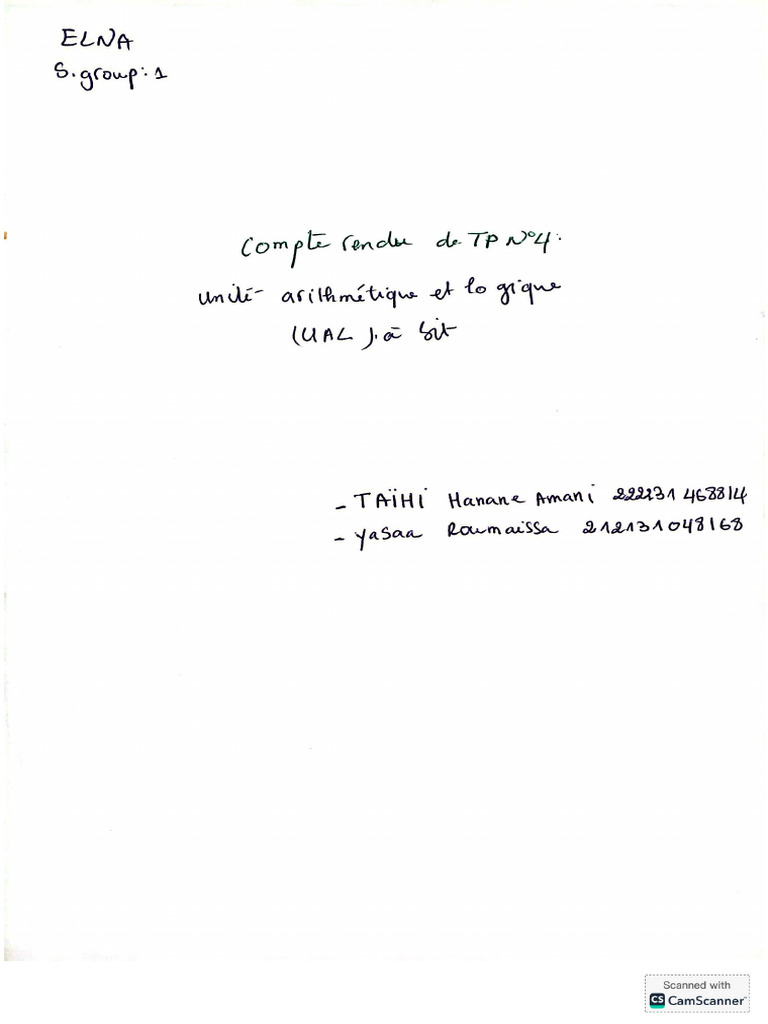 ELNA
S.group: 1
Compte rendu de TP N°4:
unité arithmétique et logique
(UAL). à bit
- TAÏHI Hanane Amani 222231468814
- Yasaa Roumaissa 212131048168
Scanned with
CS CamScanner